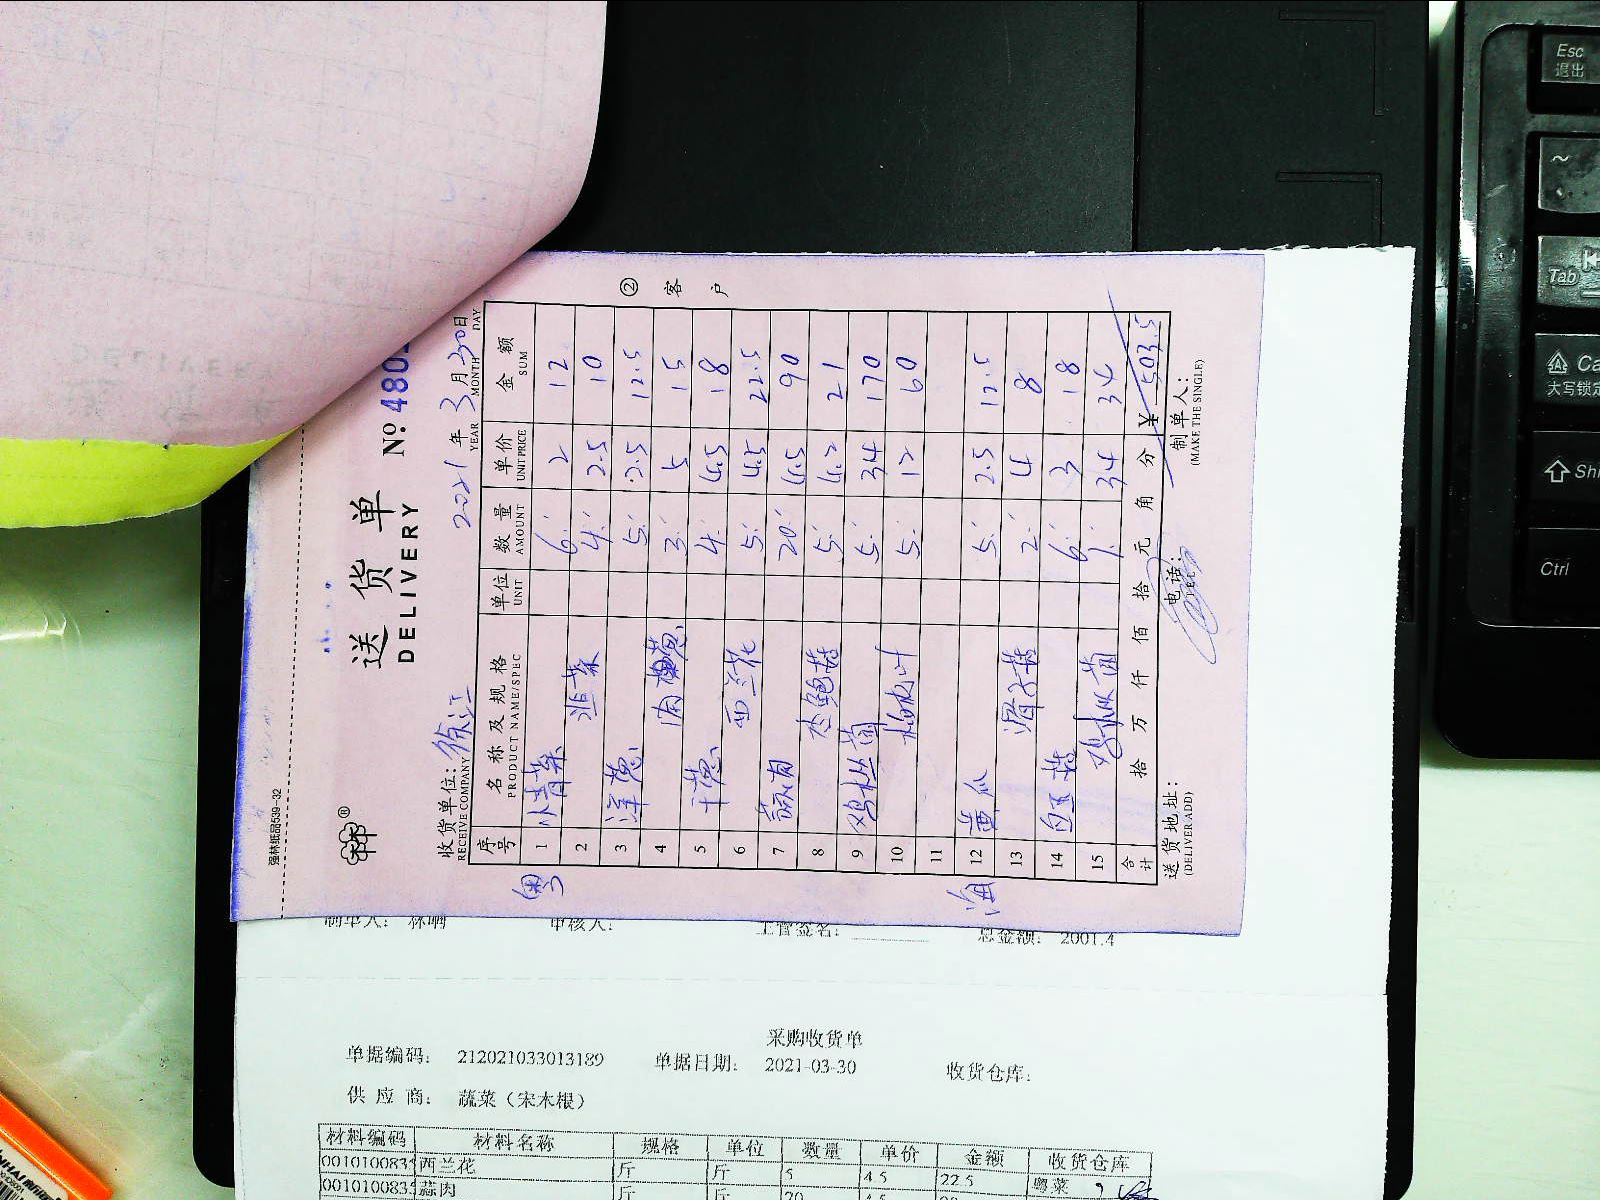 强林纸品539-32
送货单
DELIVERY
№ 480
收货单位: 徐江
RECEIVE COMPANY
2021年3月30日
YEAR MONTH DAY
序号 名称及规格 单位 数量 单价 金额
PRODUCT NAME/SPEC UNIT AMOUNT UNIT PRICE SUM
粤
1 小青菜 6 2 12
2 韭菜 4 2.5 10
3 洋葱 5 2.5 12.5
4 3 5 15
5 干葱 4 4.5 18
6 西兰花 5 4.5 22.5
7 蒜肉 20 4.5 90
8 杏鲍菇 5 4.2 21
9 鸡枞菌 5 34 170
10 5 12 60
11
海
12 黄瓜 5 2.5 12.5
13 滑子菇 2 4 8
14 白玉菇 6 3 18
15 鸡枞菌 1 34 34
合计 拾 万 仟 佰 拾 元 角 分 ¥ 503.5
送货地址: 电话: 制单人:
(DELIVER ADD) (TEL) (MAKE THE SINGLE)
② 客户
制单人: 林 审核人: 主管签名: 总金额: 2001.4
采购收货单
单据编码: 212021033013189 单据日期: 2021-03-30 收货仓库:
供应商: 蔬菜（宋木根）
材料编码 材料名称 规格 单位 数量 单价 金额 收货仓库
001010083 西兰花 斤 斤 5 4.5 22.5 粤菜
001010083 蒜肉 斤 斤 20 4.5
Esc
退出
~
Tab
Ca
大写锁定
Shi
Ctrl